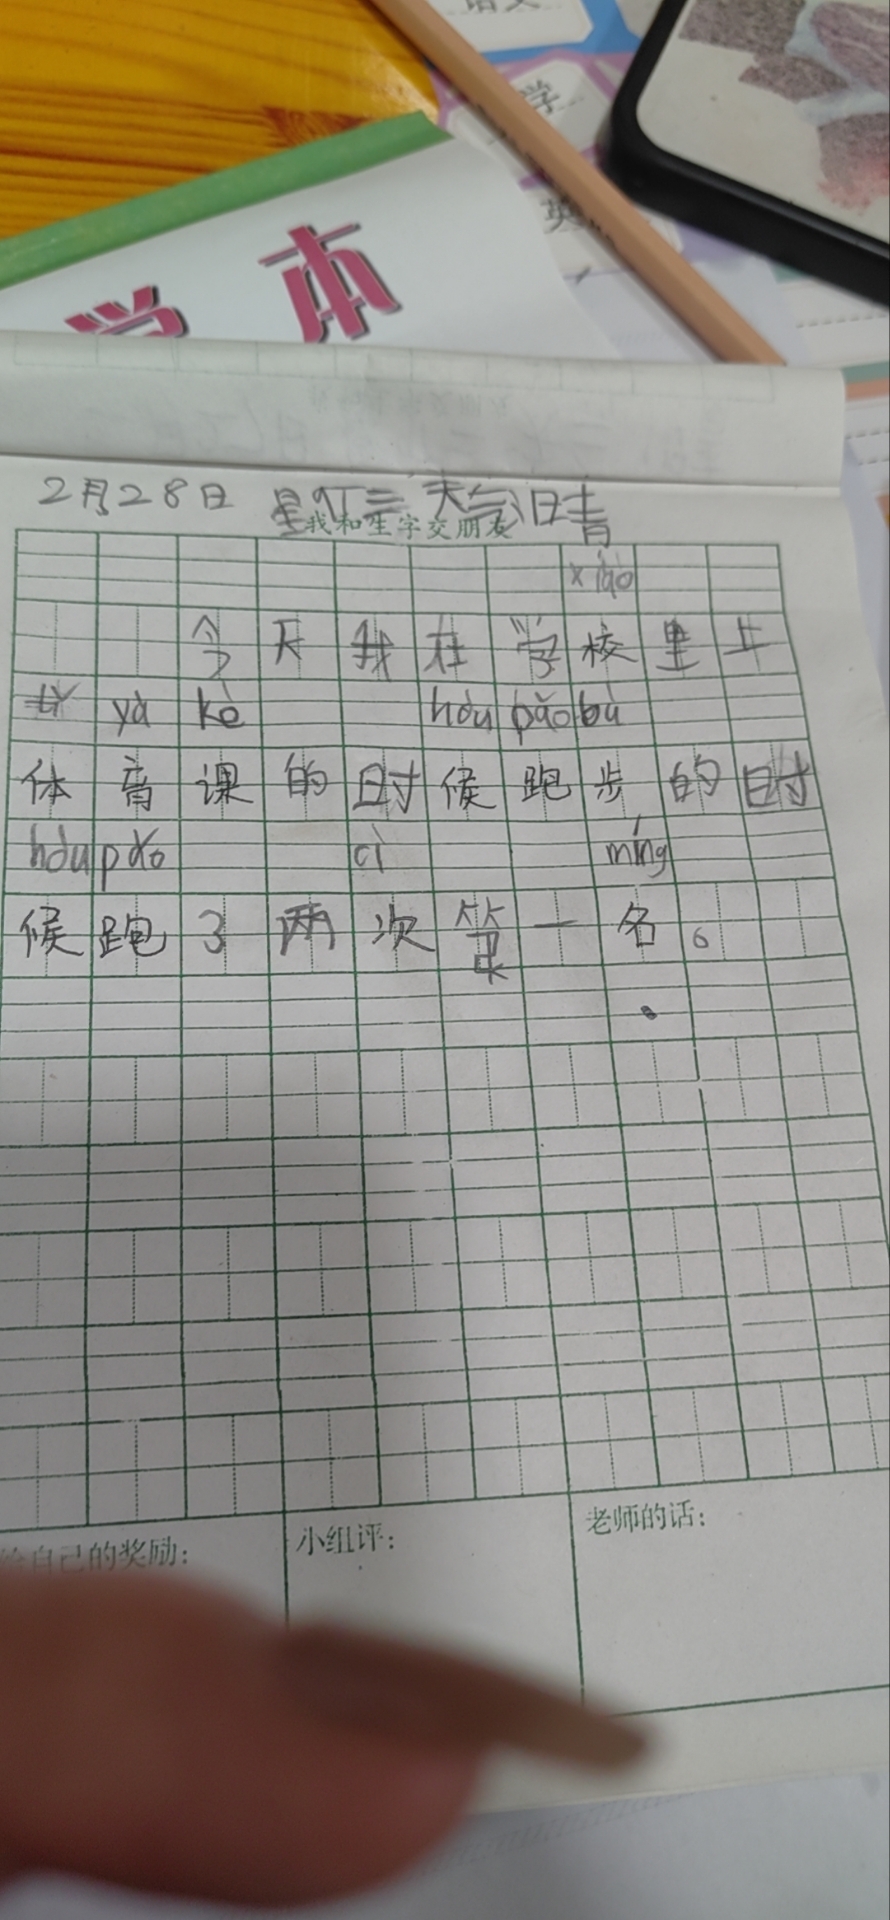 语文
学
英
学本
2月28日 星仃三 天气日青
我和生字交朋友
xiào
今天我在学校里上
tǐ yù kè hòu pǎo bù
体育课的时候跑步的时
hòu pǎo cì míng
候跑了两次第一名。
给自己的奖励:
小组评:
老师的话: